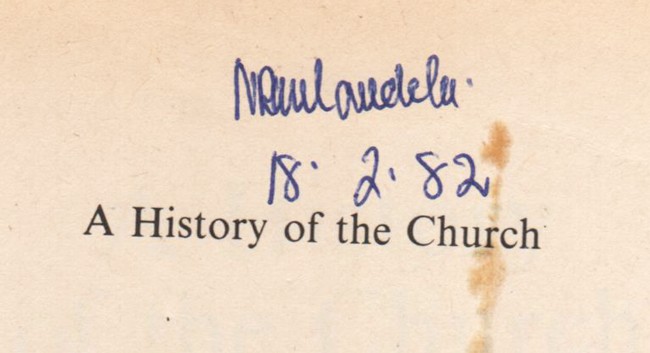 18. 2. 82
A History of the Church